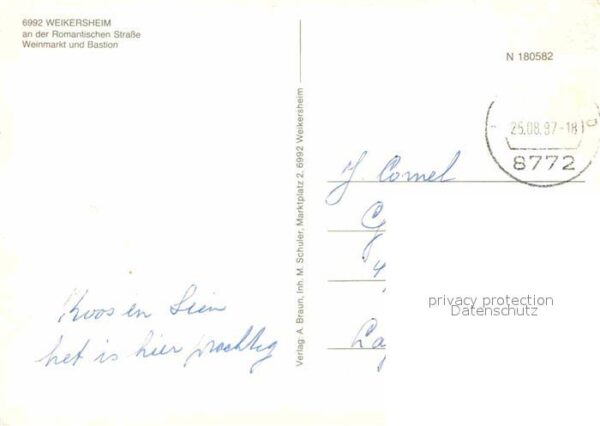 6992 WEIKERSHEIM
an der Romantischen Straße
Weinmarkt und Bastion
N 180582
25.08.87-18
8772
Verlag: A. Braun, Inh. M. Schuler, Marktplatz 2, 6992 Weikersheim
J. Cornel
C
4
La
privacy protection
Datenschutz
Koos en Sien
het is hier prachtig